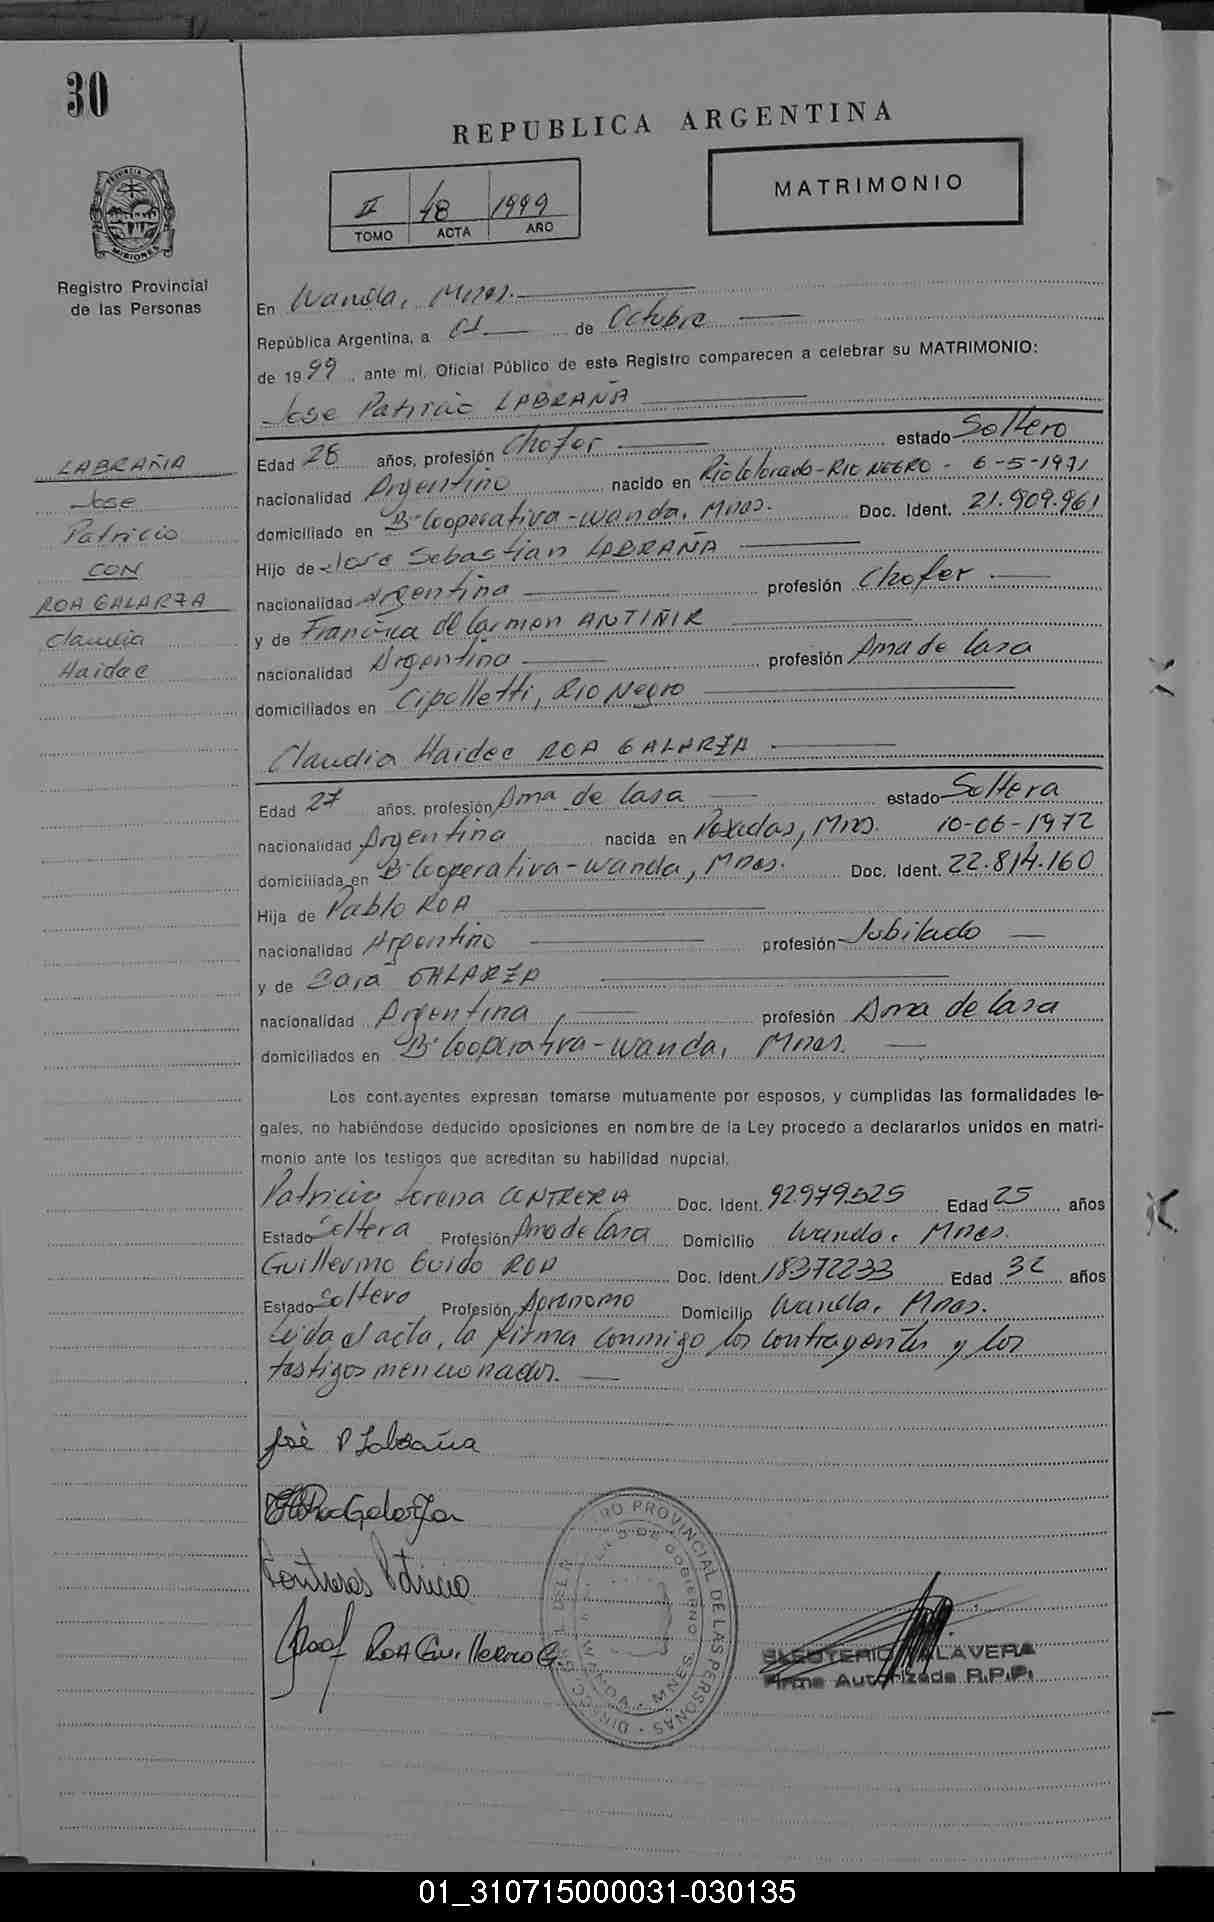 30
REPUBLICA ARGENTINA
MATRIMONIO
II 48 1999
TOMO ACTA AÑO
PROVINCIA DE
MISIONES
Registro Provincial
de las Personas
En Wanda, Mnes.
República Argentina, a 01 de Octubre
de 1999, ante mí, Oficial Público de este Registro comparecen a celebrar su MATRIMONIO:
Jose Patricio LABRAÑA
LABRAÑA
Jose
Patricio
CON
ROA GALARZA
Claudia
Haidee
Edad 28 años, profesión Chofer estado Soltero
nacionalidad Argentino nacido en Rio Colorado - RIO NEGRO - 6-5-1971
domiciliado en Bº Cooperativa - Wanda, Mnes. Doc. Ident. 21.909.961
Hijo de Jose Sebastian LABRAÑA
nacionalidad Argentina profesión Chofer
y de Francisca del Carmen ANTIÑIR
nacionalidad Argentina profesión Ama de Casa
domiciliados en Cipolletti, Rio Negro
Claudia Haidee ROA GALARZA
Edad 27 años, profesión Ama de Casa estado Soltera
nacionalidad Argentina nacida en Posadas, Mnes. 10-06-1972
domiciliada en Bº Cooperativa - Wanda, Mnes. Doc. Ident. 22.814.160
Hija de Pablo ROA
nacionalidad Argentino profesión Jubilado
y de Sara GALARZA
nacionalidad Argentina, profesión Ama de Casa
domiciliados en Bº Cooperativa - Wanda, Mnes.
Los cont.ayentes expresan tomarse mutuamente por esposos, y cumplidas las formalidades le-
gales, no habiéndose deducido oposiciones en nombre de la Ley procedo a declararlos unidos en matri-
monio ante los testigos que acreditan su habilidad nupcial.
Patricia Lorena Doc. Ident. 92979525 Edad 25 años
Estado Soltera Profesión Ama de Casa Domicilio Wanda, Mnes.
Guillermo Guido ROA Doc. Ident. 18372233 Edad 32 años
Estado Soltero Profesión Agronomo Domicilio Wanda, Mnes.
Leida el acta, la firma conmigo los contrayentes y los
testigos mencionados.
José P Labraña
Roa Galarza
Contreras Patricia
Roa ROA Guillermo G.
PROVINCIAL DE LAS PERSONAS
DE GOBIERNO
WANDA - MNES
ELEUTERIO TALAVERA
Firma Autorizada R.P.P.
01_310715000031-030135